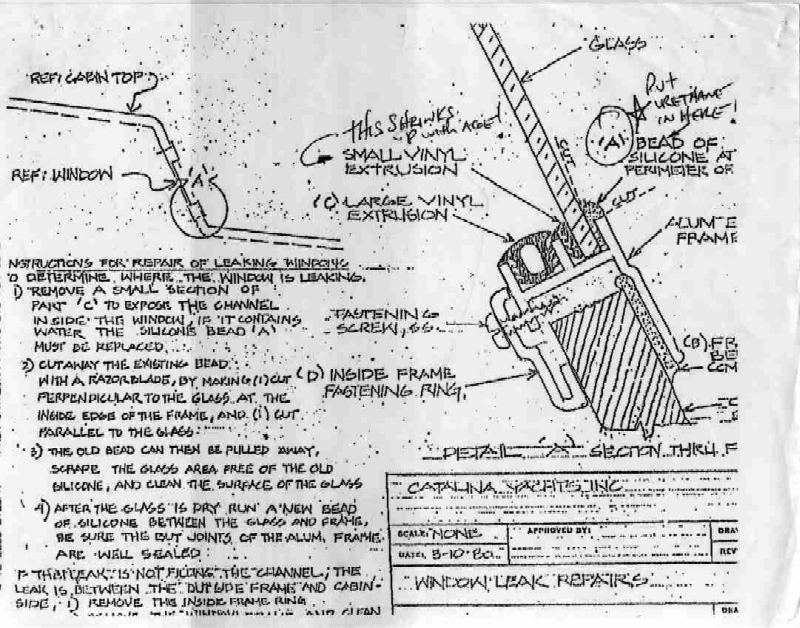 REF: CABIN TOP
REF: WINDOW
'A'
GLASS
THIS SHRINKS
UP WITH AGE!
SMALL VINYL
EXTRUSION
(C) LARGE VINYL
EXTRUSION
CUT
PUT
URETHANE
IN HERE!
'A' BEAD OF
SILICONE AT
PERIMETER OF
CUT
ALUM
FRAME
FASTENING
SCREW, SS.
(D) INSIDE FRAME
FASTENING RING.
(B) FR
BE
COM
DETAIL 'A' SECTION THRU F
NSTRUCTIONS FOR REPAIR OF LEAKING WINDOWS
O DETERMINE WHERE THE WINDOW IS LEAKING.
1) REMOVE A SMALL SECTION OF
PART 'C' TO EXPOSE THE CHANNEL
INSIDE THE WINDOW, IF IT CONTAINS
WATER THE SILICONE BEAD 'A'
MUST BE REPLACED.
2) CUT AWAY THE EXISTING BEAD
WITH A RAZOR BLADE, BY MAKING (1) CUT
PERPENDICULAR TO THE GLASS AT THE
INSIDE EDGE OF THE FRAME, AND (1) CUT
PARALLEL TO THE GLASS
3) THE OLD BEAD CAN THEN BE PULLED AWAY,
SCRAPE THE GLASS AREA FREE OF THE OLD
SILICONE, AND CLEAN THE SURFACE OF THE GLASS
4) AFTER THE GLASS IS DRY RUN A NEW BEAD
OF SILICONE BETWEEN THE GLASS AND FRAME,
BE SURE THE BUT JOINTS OF THE ALUM. FRAME
ARE WELL SEALED
IS NOT FILLING THE CHANNEL, THE
LEAK IS BETWEEN THE OUTSIDE FRAME AND CABIN
SIDE, 1) REMOVE THE INSIDE FRAME RING
AND CLEAN
CATALINA YACHTS INC
SCALE: NONE
APPROVED BY:
DRA
DATE: 3-10-80
REV
WINDOW LEAK REPAIRS
DRA